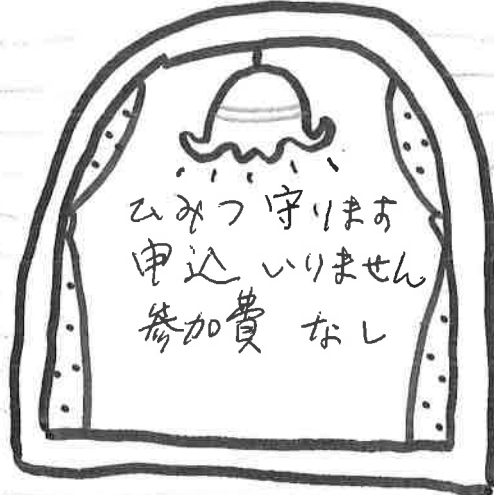 ひみつ 守ります
申込 いりません
参加費 なし